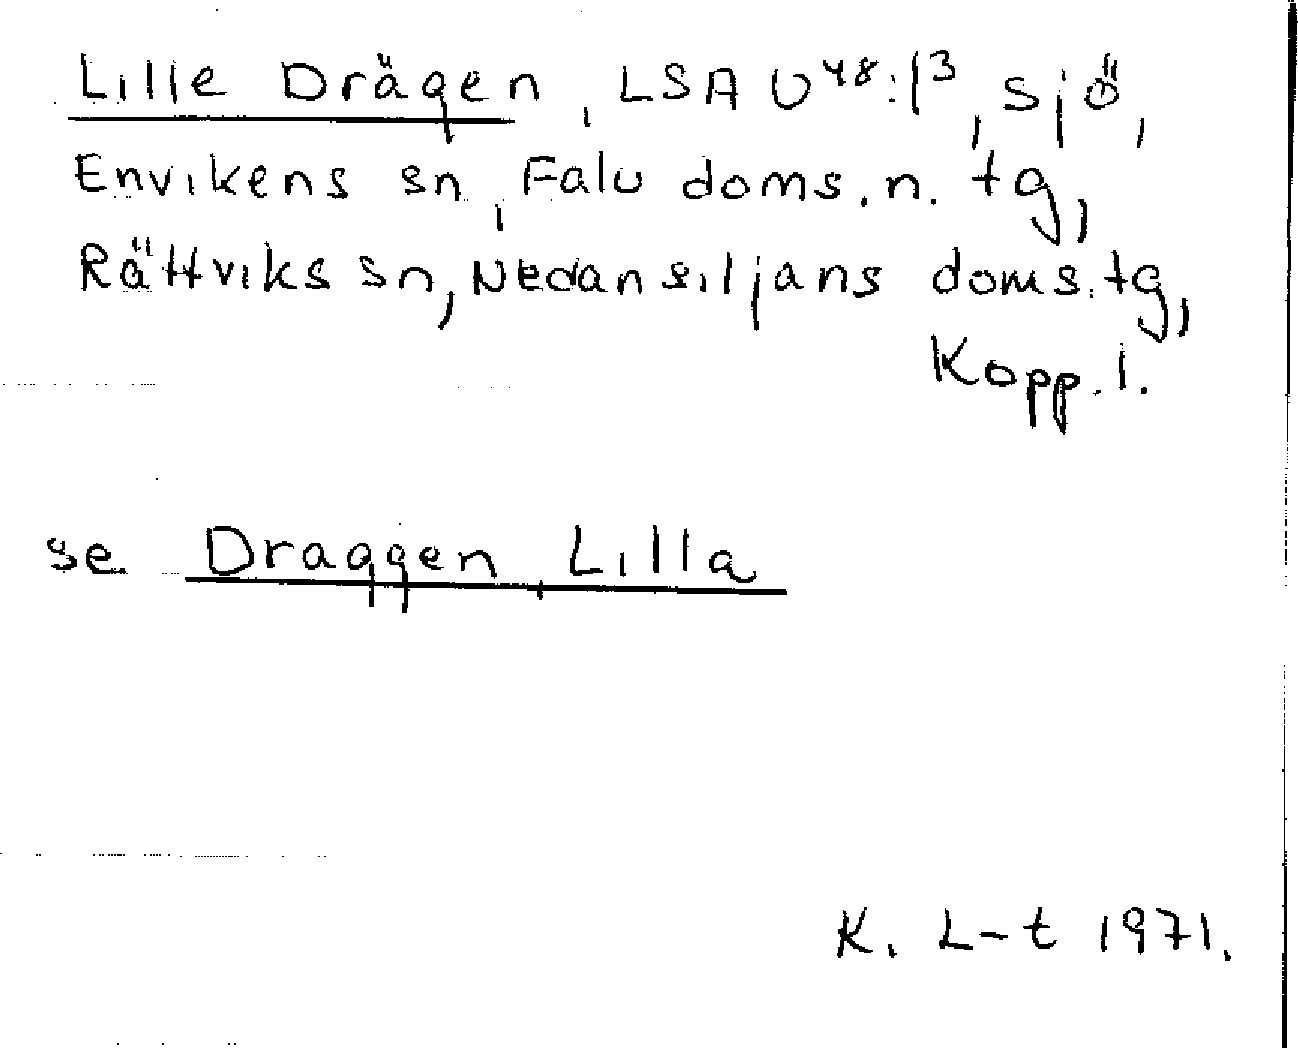 Lille Drägen, LSA U48:13, sjö,
Envikens sn, Falu doms.n. tg,
Rättviks sn, Nedansiljans doms.tg,
Kopp.l.
se Draggen, Lilla
K. L-t 1971.